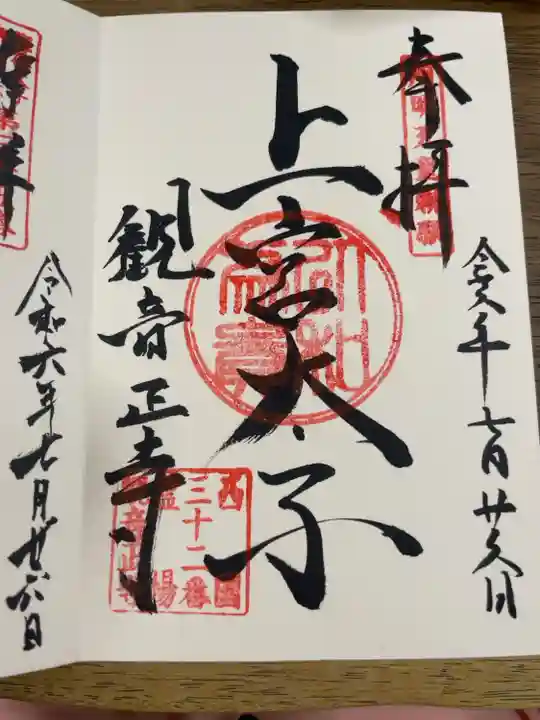 奉拝
令六年七月廿六日
上宮太子
観音正寺
西国
三十二番
霊場
観音正寺
奉拝
令和六年七月廿六日